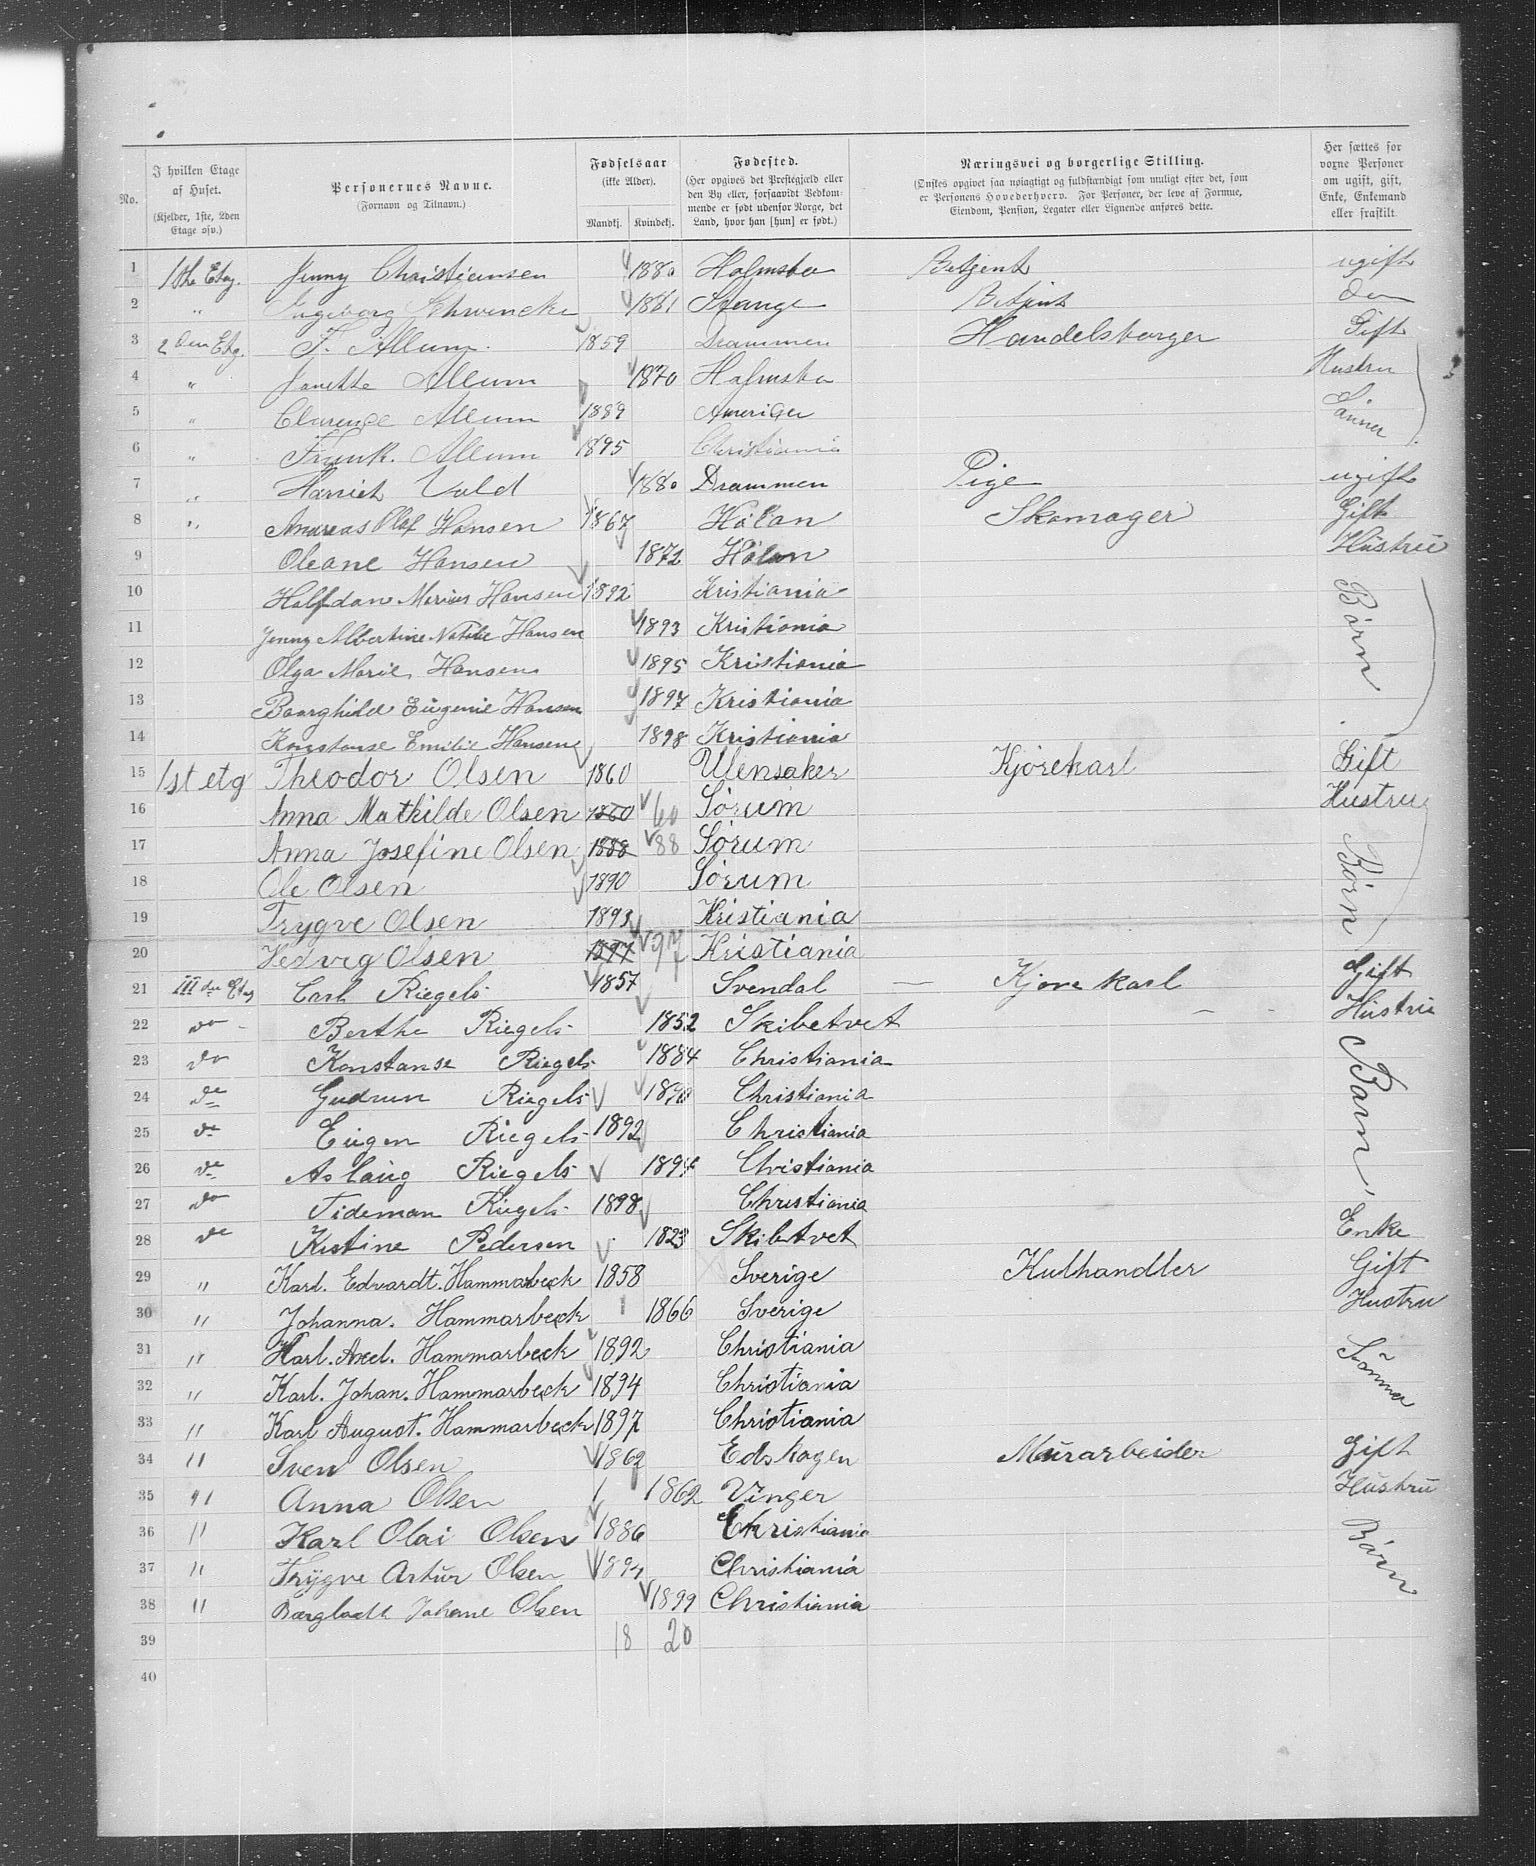 No. I hvilken Etage af Huset. (Kjelder, 1ste, 2den Etage osv.) Personernes Navne. (Fornavn og Tilnavn.) Fødselsaar (ikke Alder). Mandkj. Kvindekj. Fødested. (Her opgives det Prestegjæld eller den By eller, forsaavidt Vedkommende er født udenfor Norge, det Land, hvor han [hun] er født.) Næringsvei og borgerlige Stilling. (Ønskes opgivet saa nøiagtigt og fuldstændigt som muligt efter det, som er Personens Hovederhverv. For Personer, der leve af Formue, Eiendom, Pension, Legater eller Lignende anføres dette. Her sættes for voxne Personer om ugift, gift, Enke, Enkemand eller fraskilt.
1 1ste Etag. Jenny Christiansen 1880 Holmsbo Betjent ugift
2 " Ingeborg Schwencke 1881 Stange Betjent do
3 2den Etg. F. Allum 1859 Drammen Handelsborger Gift
4 " Janette Allum 1870 Holmsbo Hustru
5 " Clarence Allum 1889 Ameriga Sønner
6 " Frank. Allum 1895 Christiania
7 " Harriet Vold 1880 Drammen Pige ugift
8 " Andreas Olaf Hansen 1867 Høland Skomager Gift
9 Oleane Hansen 1872 Høland Hustru
10 Halfdan Marius Hansen 1892 Kristiania Børn
11 Jenny Albertine Natalie Hansen 1893 Kristiania
12 Olga Marie Hansen 1895 Kristiania
13 Boarghild Eugenie Hansen 1897 Kristiania
14 Konstanse Emilie Hansen 1898 Kristiania
15 1st etg Theodor Olsen 1860 Ulensaker Kjørekarl Gift
16 Anna Mathilde Olsen 1860 60 Sørum Hustru
17 Anna Josefine Olsen 1888 88 Sørum Børn
18 Ole Olsen 1890 Sørum
19 Trygve Olsen 1893 Kristiania
20 Hedvig Olsen 1897 97 Kristiania
21 III die Etag Carl Riegels 1857 Svendal — Kjørekarl Gift
22 do - Berthe Riegels 1852 Skibetvet Hustru
23 do Konstanse Riegels 1884 Christiania Barn
24 do Gudrun Riegels 1890 Christiania
25 do Eugen Riegels 1892 Christiania
26 do Aslaug Riegels 1894 Christiania
27 do Tideman Riegels 1898 Christiania
28 do Kristine Pedersen 1823 Skibtvet Enke
29 " Karl. Edvardt. Hammarbeck 1858 Sverige Kulhandler Gift
30 " Johanna. Hammarbeck 1866 Sverige Hustru
31 " Karl. Axel. Hammarbeck 1892 Christiania Sønner
32 " Karl. Johan. Hammarbeck 1894 Christiania
33 " Karl August. Hammarbeck 1897 Christiania
34 " Sven Olsen 1862 Edskogen Murarbeider Gift
35 " Anna Olsen 1862 Vinger Hustru
36 " Karl Olai Olsen 1886 Christiania Børn
37 " Thygve Artur Olsen 1894 Christiania
38 " Johane Olsen 1899 Christiania
39 18 20
40